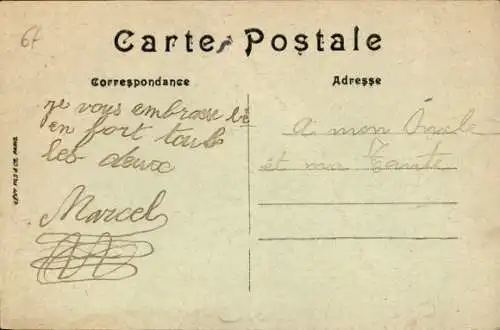 64
Carte Postale
Correspondance
Adresse
je vous embrasse bi
en fort touts
les deux
Marcel
a mon Oncle
et ma Tante